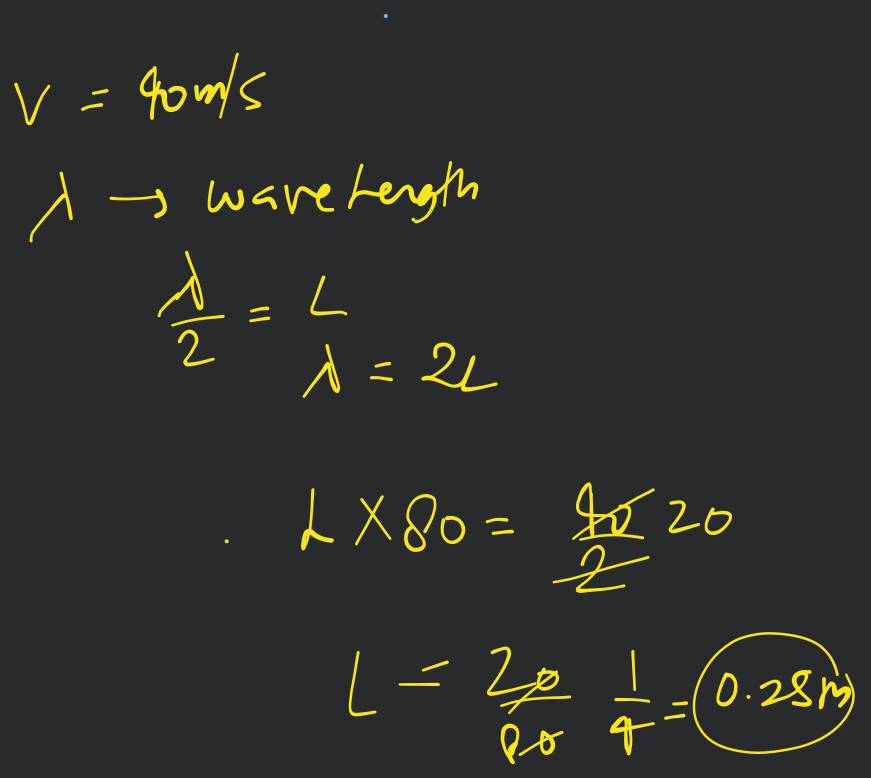 V = 40 m/s
λ → wave length
λ/2 = L
λ = 2L
L × 80 = 40/2 20
L = 20/80 1/4 = 0.25m